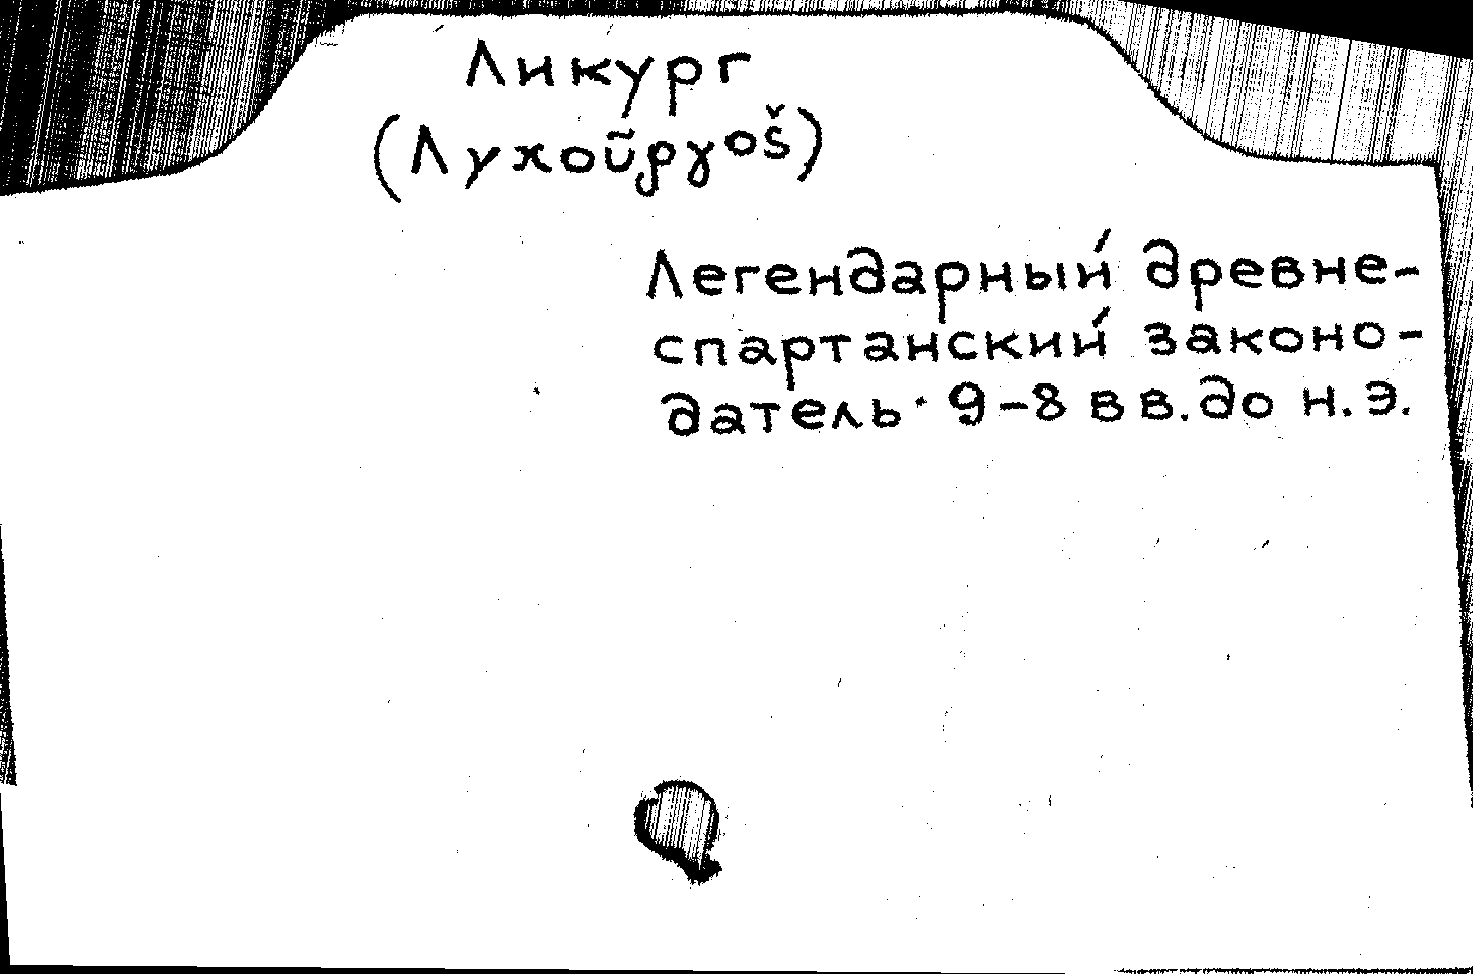 Ликург
(Лухоũруоš)
Легендарный древне-
спартанский законо-
датель. 9-8 вв. до н.э.